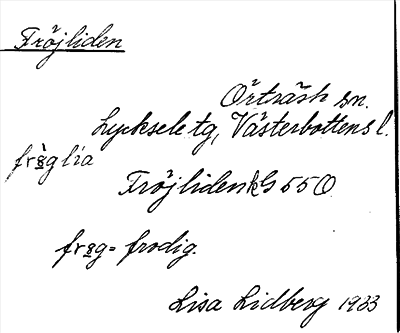 Fröjliden
Örträsk sn.
Lycksele tg, Västerbottens l.
Fröjliden kG 55 O
= frodig.
Lisa Lidberg 1933